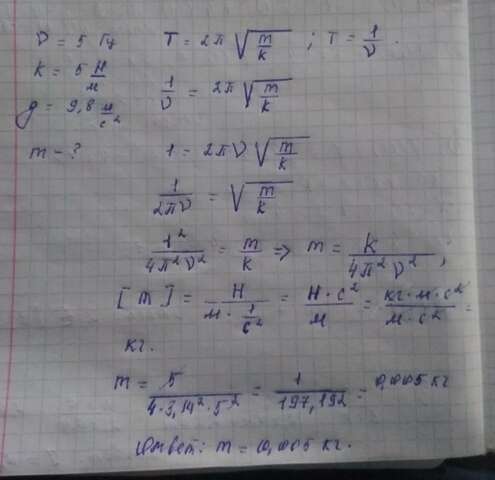 ν = 5 Гц T = 2π √(m/k) ; T = 1/ν .
k = 5 Н/м
1/ν = 2π √(m/k)
g = 9,8 м/с²
m - ? 1 = 2πν √(m/k)
1/(2πν) = √(m/k)
1²/(4π²ν²) = m/k ⇒ m = k/(4π²ν²) ;
[m] = Н/(м · 1/с²) = Н·с²/м = кг·м·с²/(м·с²) =
кг.
m = 5/(4·3,14²·5²) = 1/197,192 = 0,005 кг
Ответ: m = 0,005 кг.